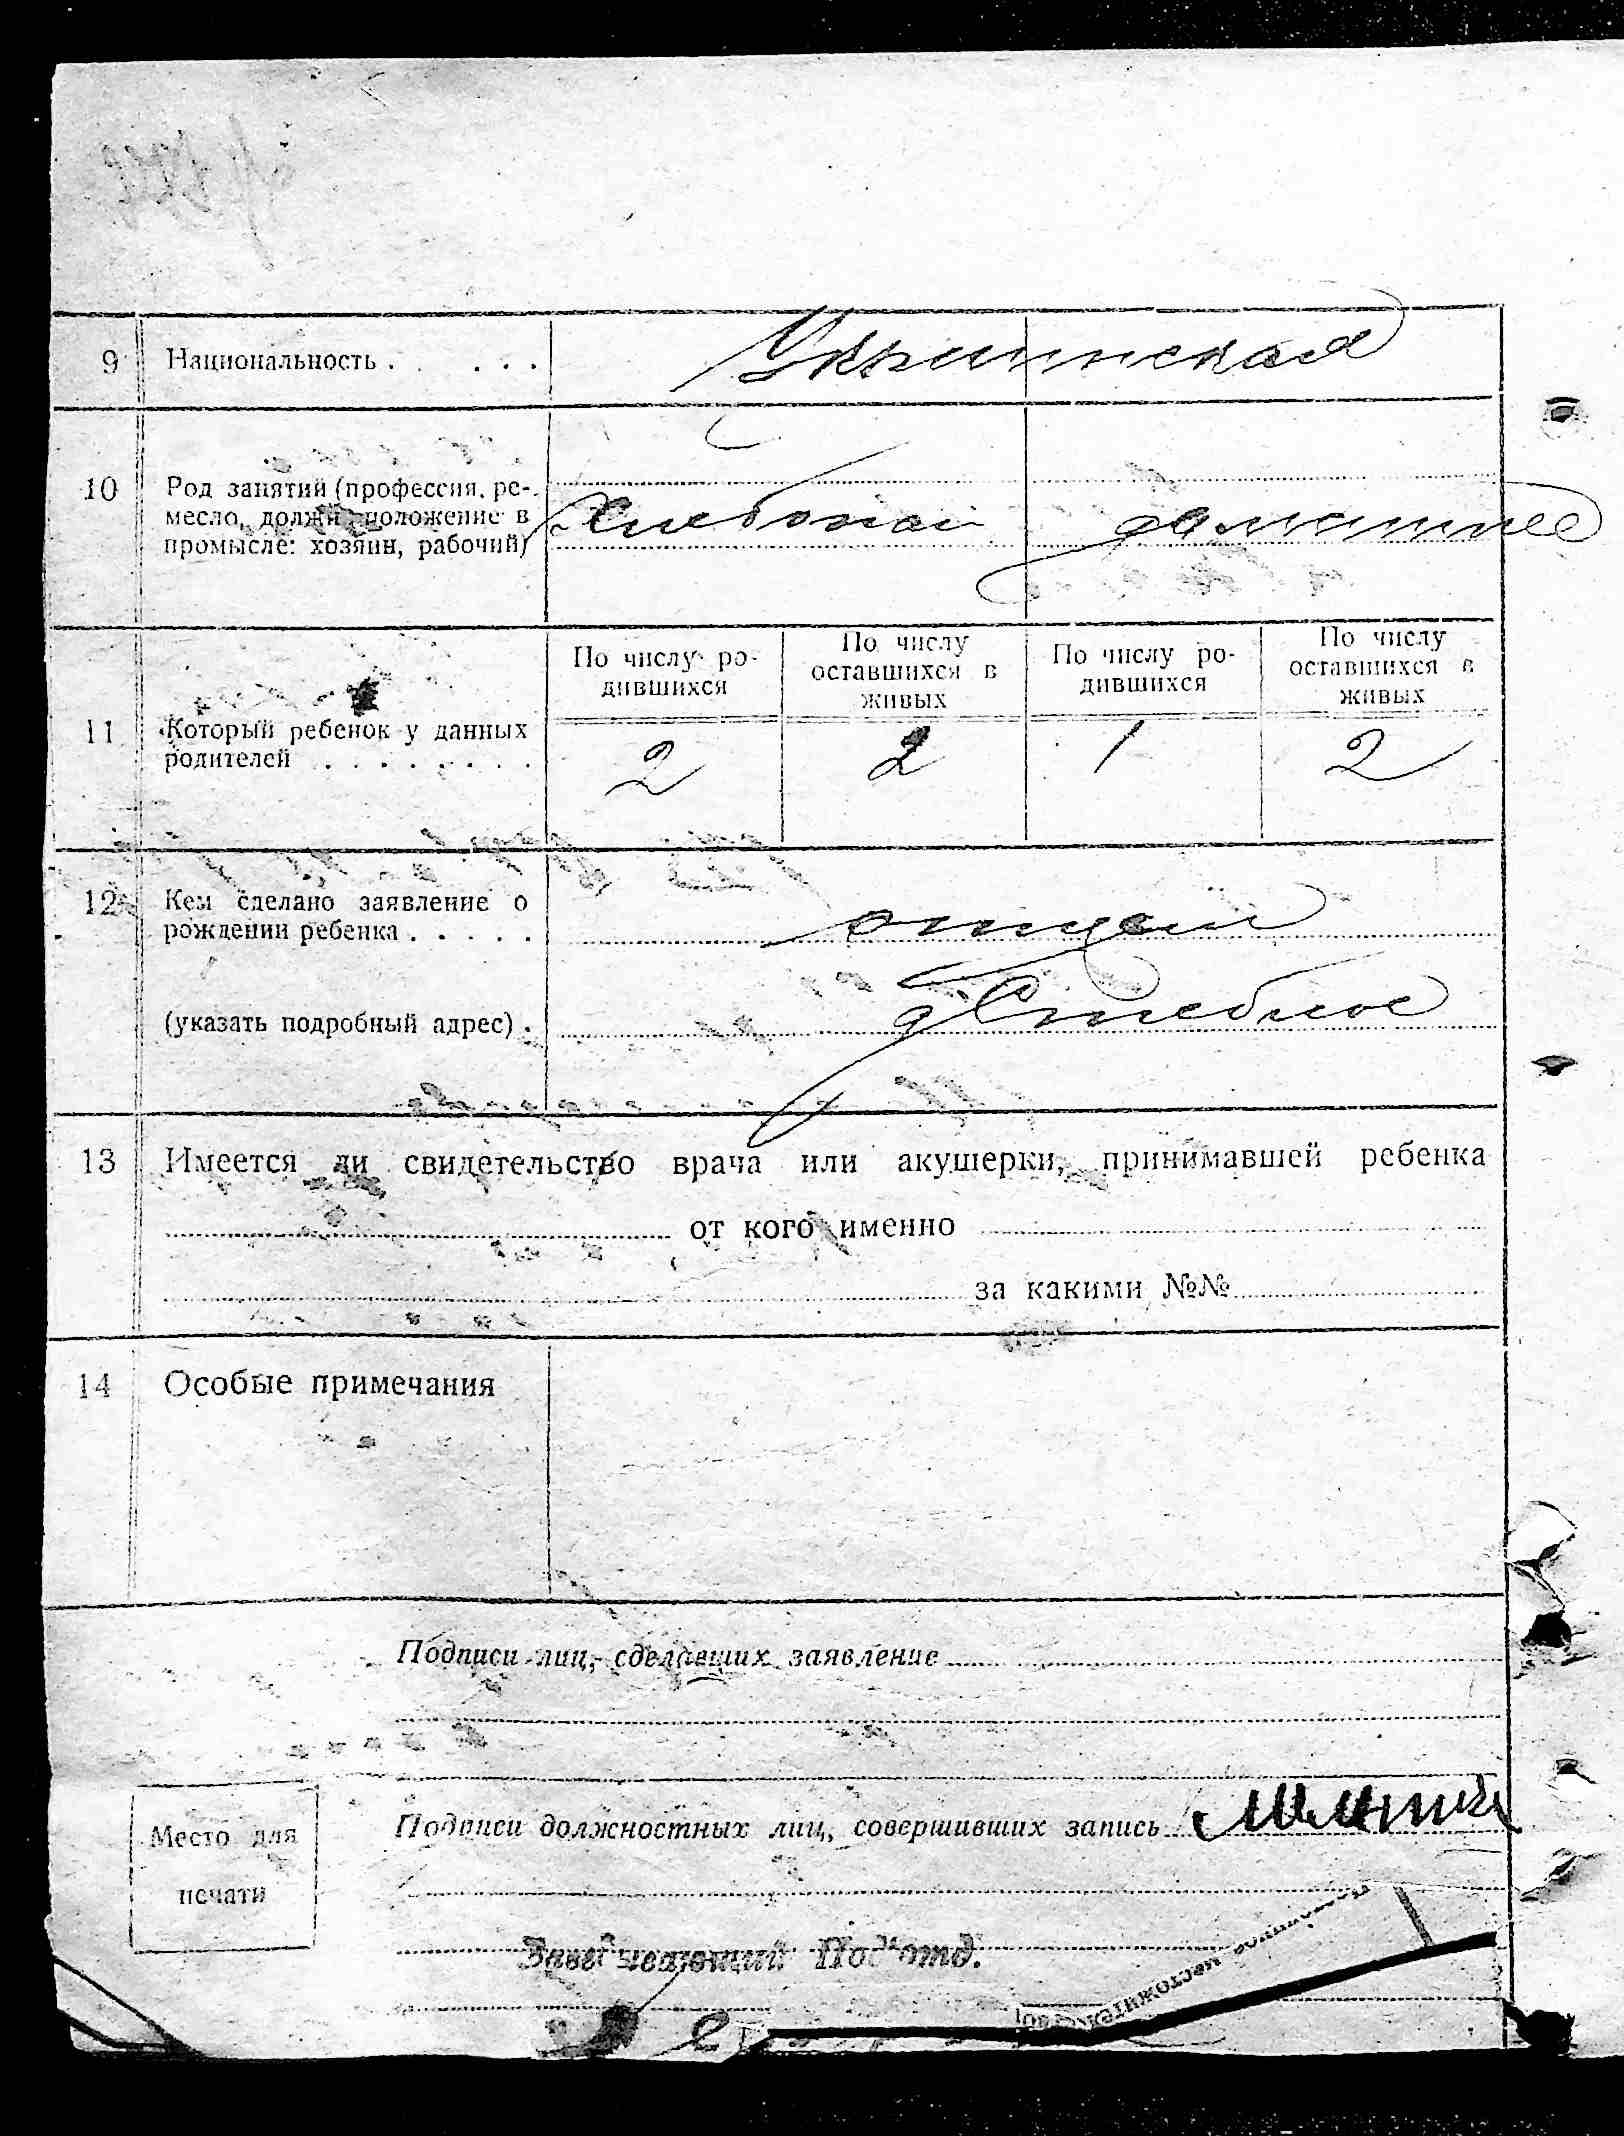 9 Национальность . . . . . Украинская
10 Род занятий (профессия, ре-
месло, должн. положение в Хлебопаш домашнее
промысле: хозяин, рабочий)
По числу ро-
дившихся По числу
оставшихся в
живых По числу ро-
дившихся По числу
оставшихся в
живых
11 Который ребенок у данных
родителей . . . . . . . . 2 2 1 2
12 Кем сделано заявление о
рождении ребенка . . . . . отцем
(указать подробный адрес) .
13 Имеется ли свидетельство врача или акушерки, принимавшей ребенка
от кого именно
за какими №№
14 Особые примечания
Подписи лиц, сделавших заявление
Подписи должностных лиц, совершивших запись
Место для
печати
Заведывающий Под'отд.